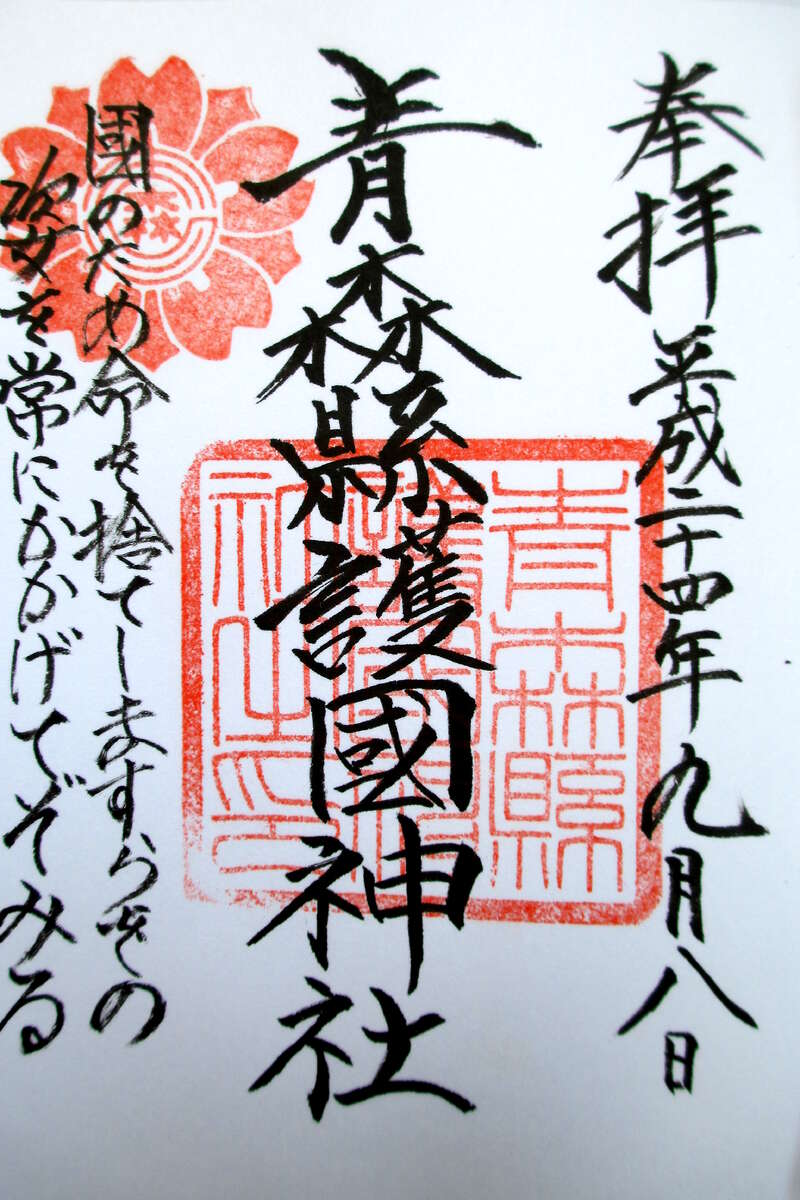 奉拝 平成二十四年九月八日
青森縣護國神社
青森縣
護國神
社之印
國のため命を捨てしますらをの
姿を常にかかげてぞみる